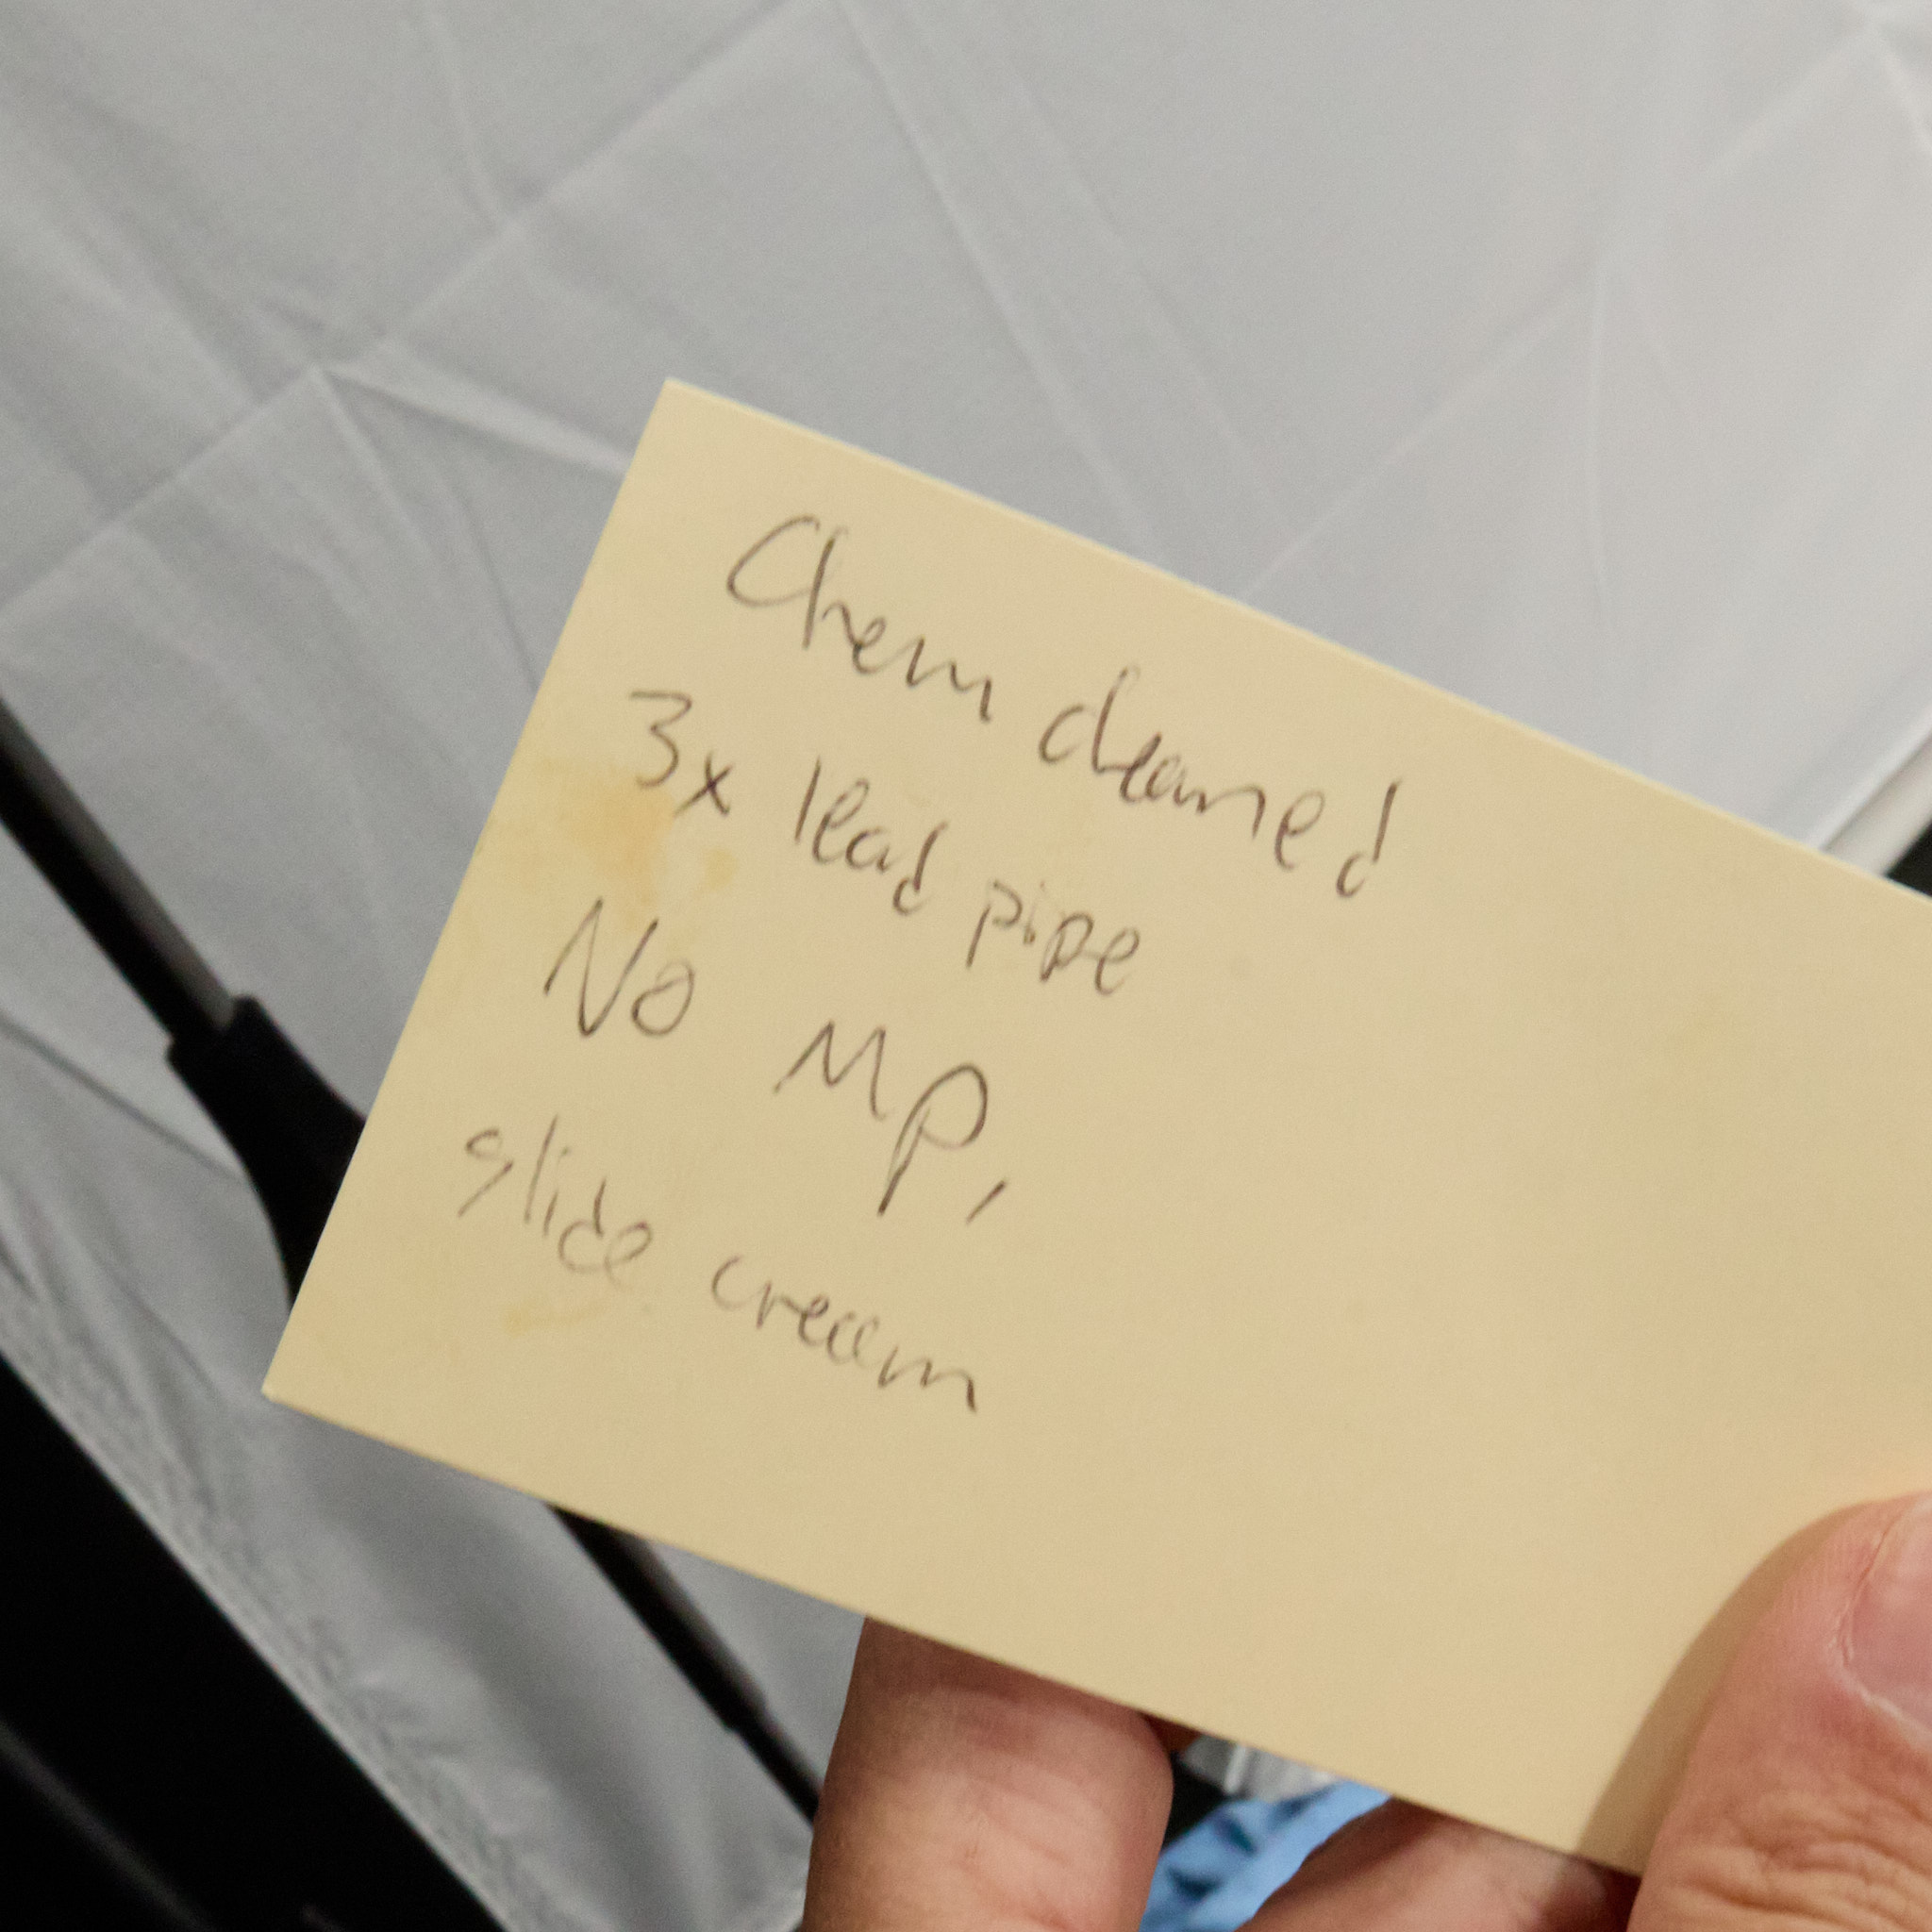 Chem cleaned
3x lead pipe
No MP,
slide cream